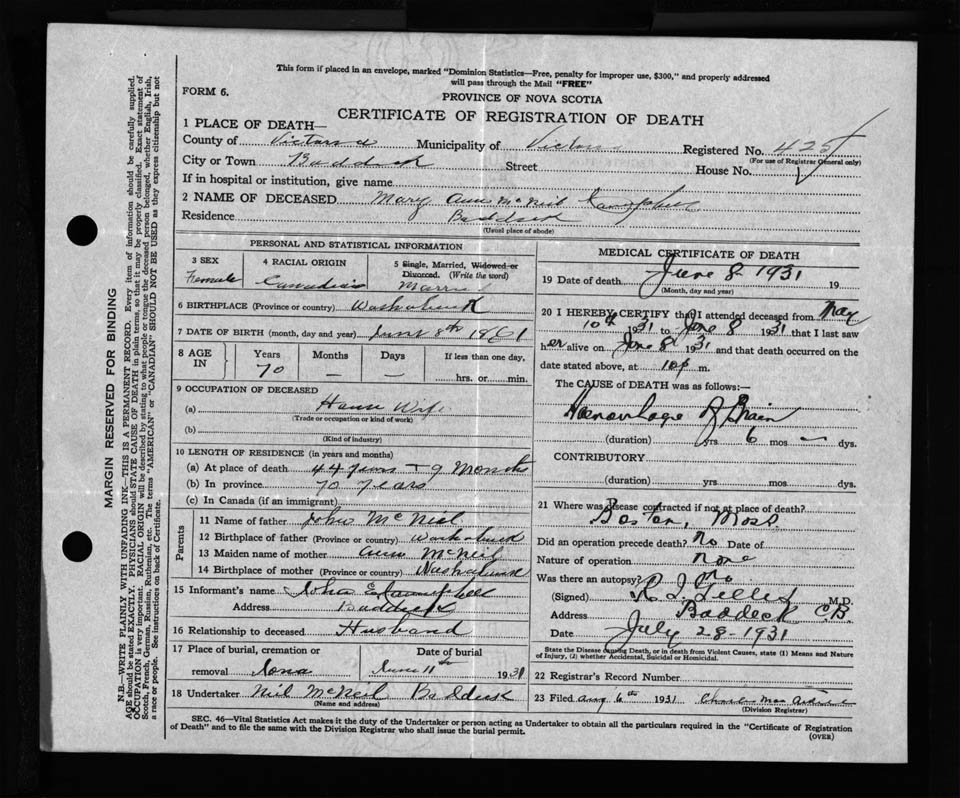 This form if placed in an envelope, marked "Dominion Statistics—Free, penalty for improper use, $300," and properly addressed
will pass through the Mail "FREE"
FORM 6.
PROVINCE OF NOVA SCOTIA
CERTIFICATE OF REGISTRATION OF DEATH
1 PLACE OF DEATH—
County of Victoria Municipality of Victoria Registered No. 425
(For use of Registrar General only)
City or Town Baddeck Street House No.
If in hospital or institution, give name
2 NAME OF DECEASED Mary Ann McNeil Campbell
Residence Baddeck
(Usual place of abode)
PERSONAL AND STATISTICAL INFORMATION
3 SEX Female
4 RACIAL ORIGIN Canadian
5 Single, Married, Widowed or Divorced. (Write the word)
Married
6 BIRTHPLACE (Province or country) Washabuck
7 DATE OF BIRTH (month, day and year) June 8th 1861
8 AGE IN Years 70 Months — Days — If less than one day, hrs. or min.
9 OCCUPATION OF DECEASED
(a) House Wife
(Trade or occupation or kind of work)
(b)
(Kind of industry)
10 LENGTH OF RESIDENCE (in years and months)
(a) At place of death 44 years + 9 Months
(b) In province 70 years
(c) In Canada (if an immigrant)
Parents
11 Name of father John McNeil
12 Birthplace of father (Province or country) Washabuck
13 Maiden name of mother Ann McNeil
14 Birthplace of mother (Province or country) Washabuck
15 Informant's name John E Campbell
Address Baddeck
16 Relationship to deceased Husband
17 Place of burial, cremation or removal Iona
Date of burial June 11th 1931
18 Undertaker Neil McNeil Baddeck
(Name and address)
MEDICAL CERTIFICATE OF DEATH
19 Date of death June 8 1931 19
(Month, day and year)
20 I HEREBY CERTIFY that I attended deceased from May
10th 1931 to June 8 1931 that I last saw
her alive on June 8 1931 and that death occurred on the
date stated above, at 10 p m.
The CAUSE of DEATH was as follows:—
Haemorrhage of Brain
(duration) yrs 6 mos — dys.
CONTRIBUTORY
(duration) yrs mos dys.
21 Where was disease contracted if not at place of death?
Boston, Mass
Did an operation precede death? No Date of
Nature of operation None
Was there an autopsy? No
(Signed) M.D.
Address Baddeck C.B.
Date July 28-1931
State the Disease causing Death, or in death from Violent Causes, state (1) Means and
Nature of Injury, (2) whether Accidental, Suicidal or Homicidal.
22 Registrar's Record Number
23 Filed Aug 6th 1931
(Division Registrar)
SEC. 46—Vital Statistics Act makes it the duty of the Undertaker or person acting as Undertaker to obtain all the particulars required in the "Certificate of Registration
of Death" and to file the same with the Division Registrar who shall issue the burial permit.
(OVER)
MARGIN RESERVED FOR BINDING
N.B.—WRITE PLAINLY WITH UNFADING INK—THIS IS A PERMANENT RECORD. Every item of information should be carefully supplied.
AGE should be stated EXACTLY. PHYSICIANS should STATE CAUSE OF DEATH in plain terms, so that it may be properly classified. Exact statement of
OCCUPATION is very important. RACIAL ORIGIN will be described by stating to what people or tongue the deceased person belonged, whether English, Irish,
Scotch, French, German, Russian, Ruthenian, etc. The terms "AMERICAN" or "CANADIAN" SHOULD NOT BE USED as they express citizenship but not
a race or people. See instructions on back of Certificate.